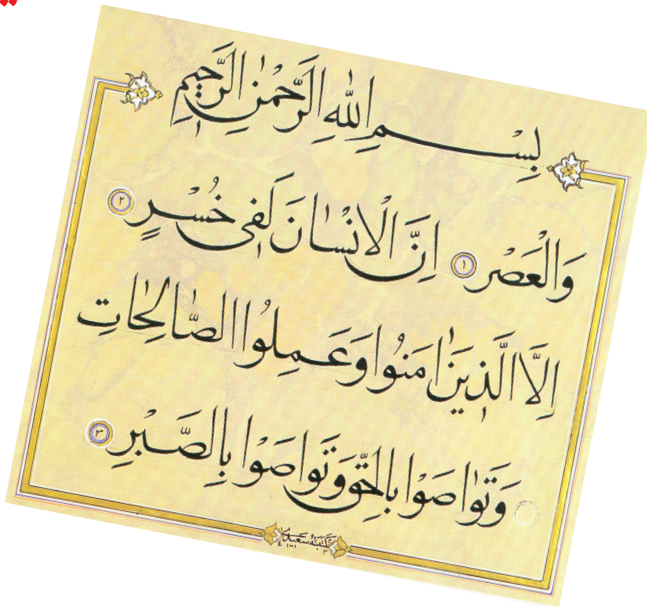 بِسْمِ اللهِ الرَّحْمٰنِ الرَّحِيمِ
وَالْعَصْرِ ١ اِنَّ الْاِنْسٰانَ لَفِى خُسْرٍ ٢
اِلَّا الَّذِينَ اٰمَنُوا وَعَمِلُوا الصّٰالِحٰاتِ
وَتَوٰاصَوْا بِالْحَقِّ وَتَوٰاصَوْا بِالصَّبْرِ ٣